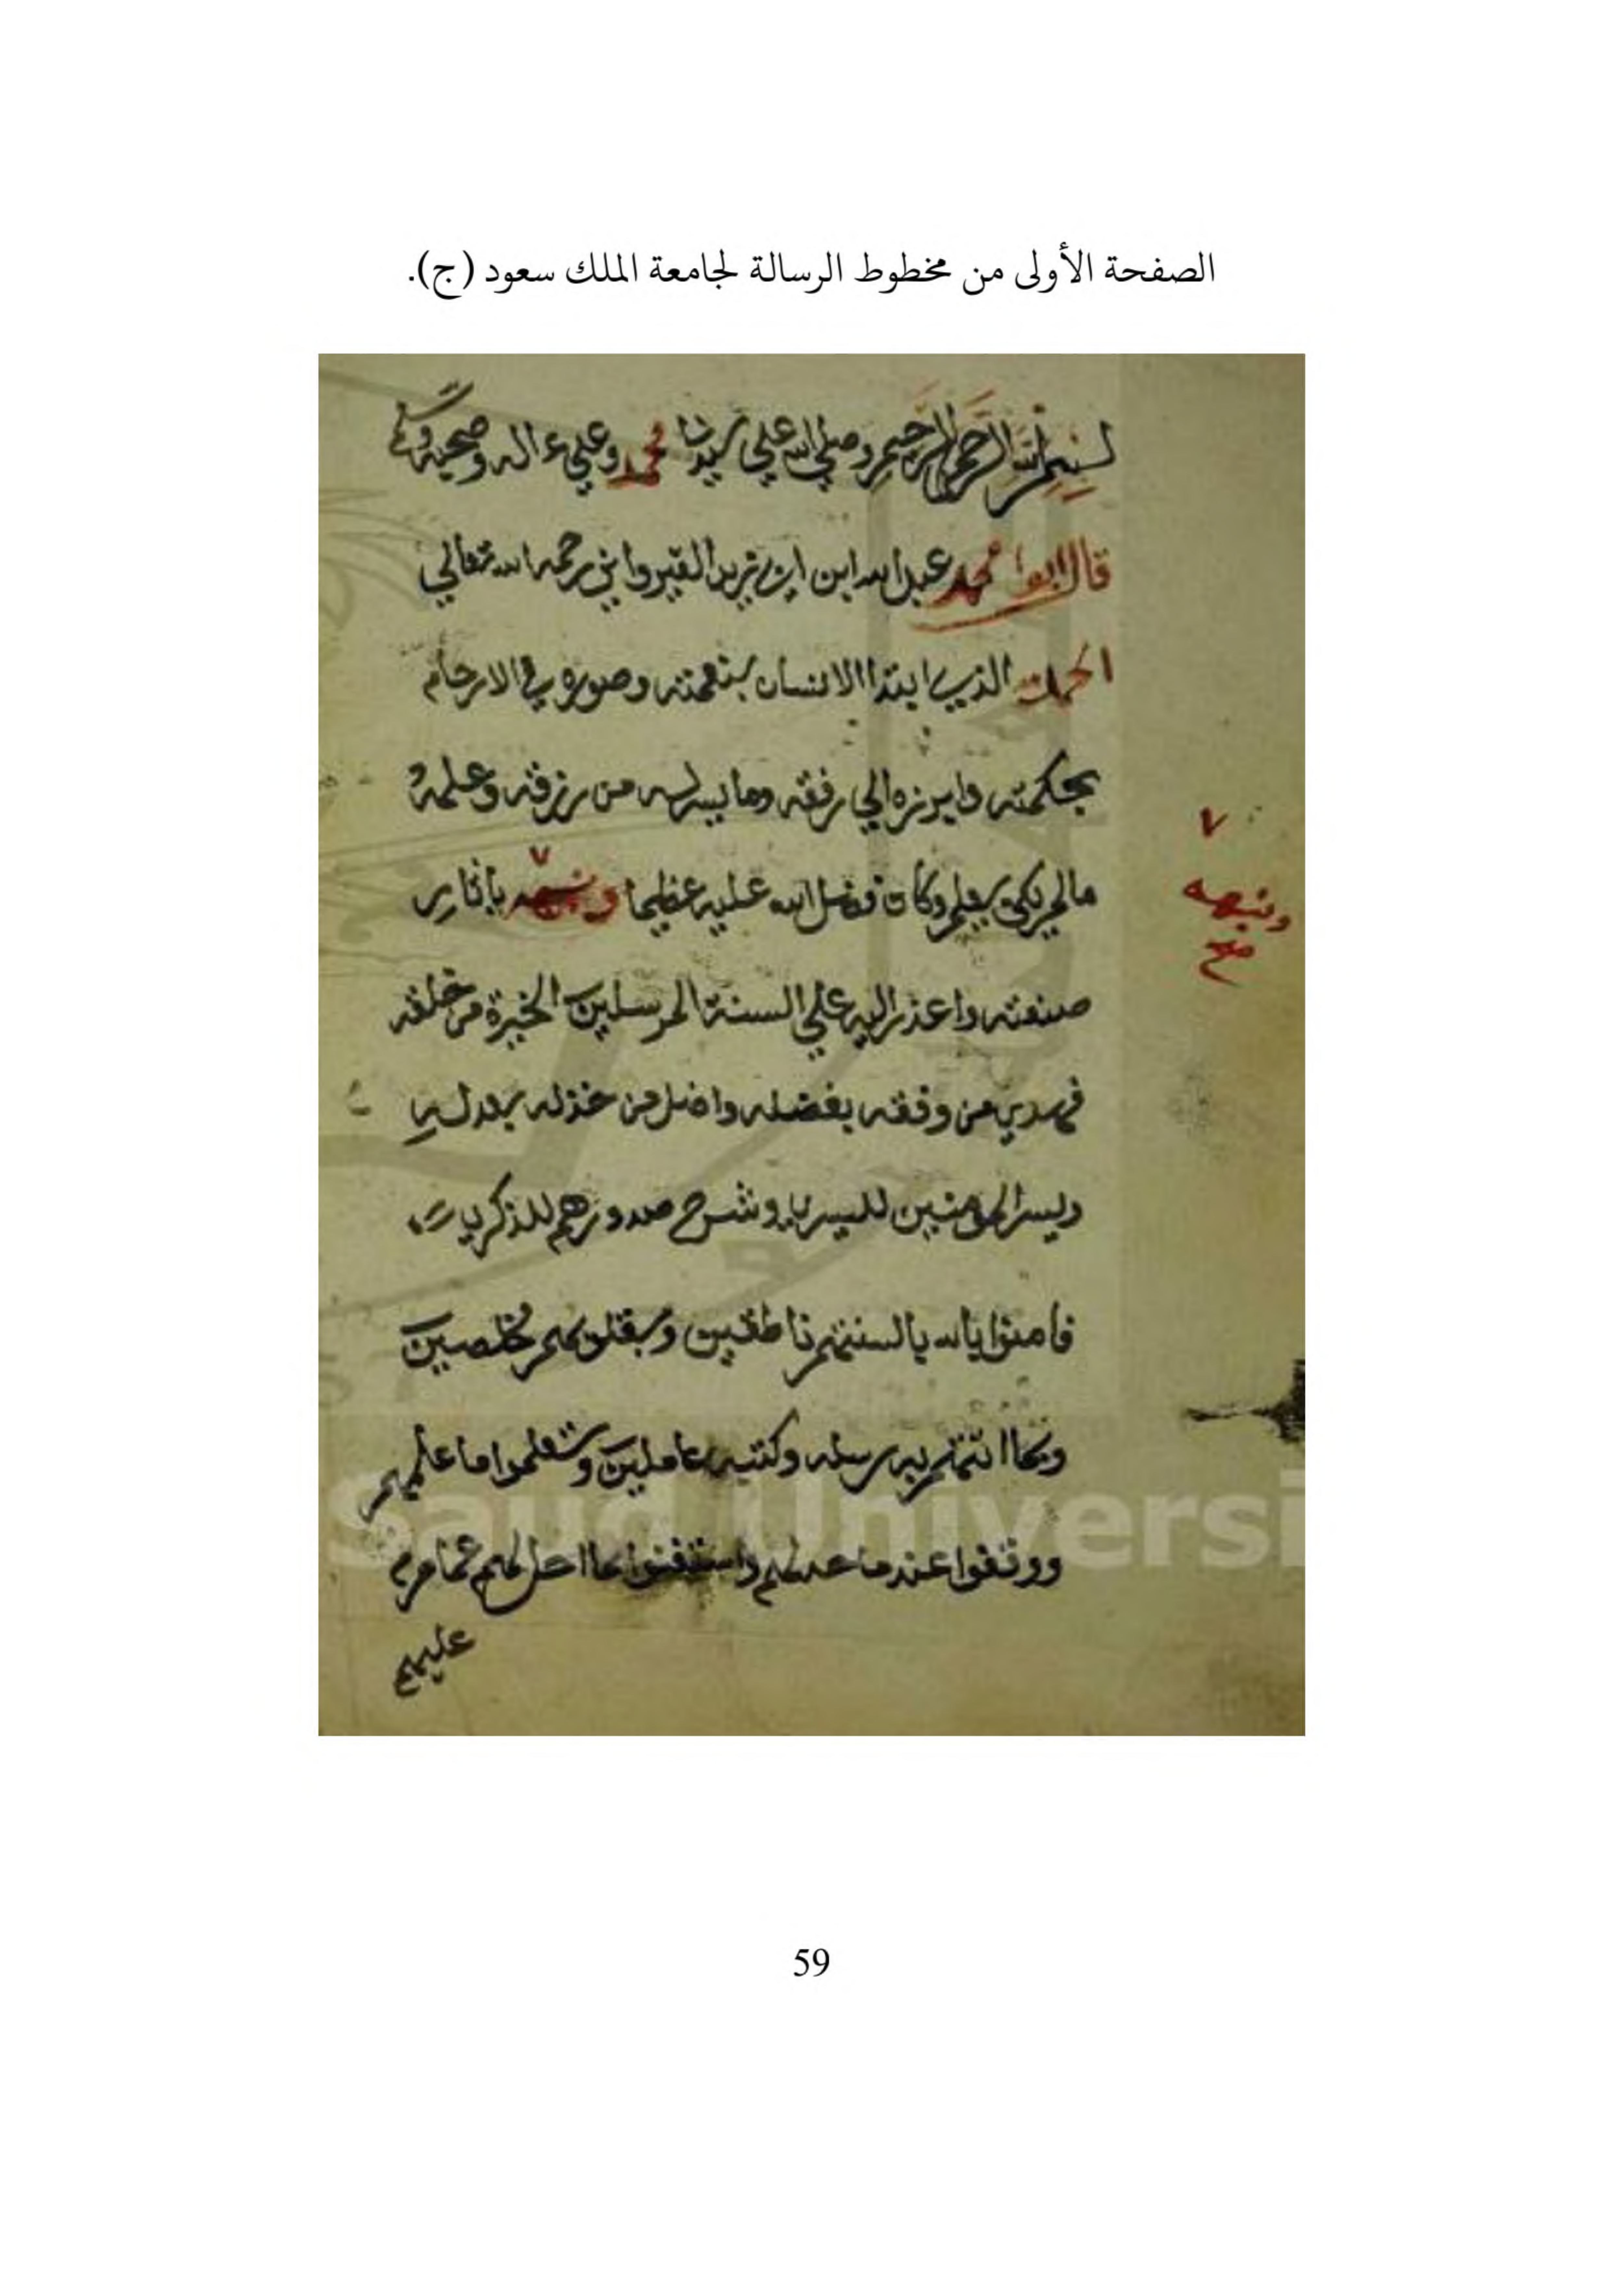 الصفحة الأولى من مخطوط الرسالة لجامعة الملك سعود (ج).
بسم الله الرحمن الرحيم وصلى الله علي سيدنا محمد وعلي ءاله وصحبه
قال ابوا محمد عبد الله ابن ابي زيد القيرواني رحمه الله تعالي
الحمد لله الذي ابتدا الانسان بنعمته وصوره في الارحام
بحكمته وابرزه الي رفقه وما يسر له من رزقه وعلمه
مالم يكن يعلم وكان فضل الله عليه عظيما ونبهه باثار
ونبهه
صح
صنعته واعذر اليه علي السنة المرسلين الخيرة من خلقه
فهدي من وفقه بفضله واضل من خذله بعدله
ويسر المومنين لليسري وشرح صدورهم للذكري
فامنوا بالله بالسنتهم ناطقين وبقلوبهم مخلصين
وبما اتتهم به رسله وكتبه عاملين وتعلموا ما علمهم
ووقفوا عند ما حد لهم واستغنوا بما احل لهم عما حرم
عليهم
Saud Universi
59